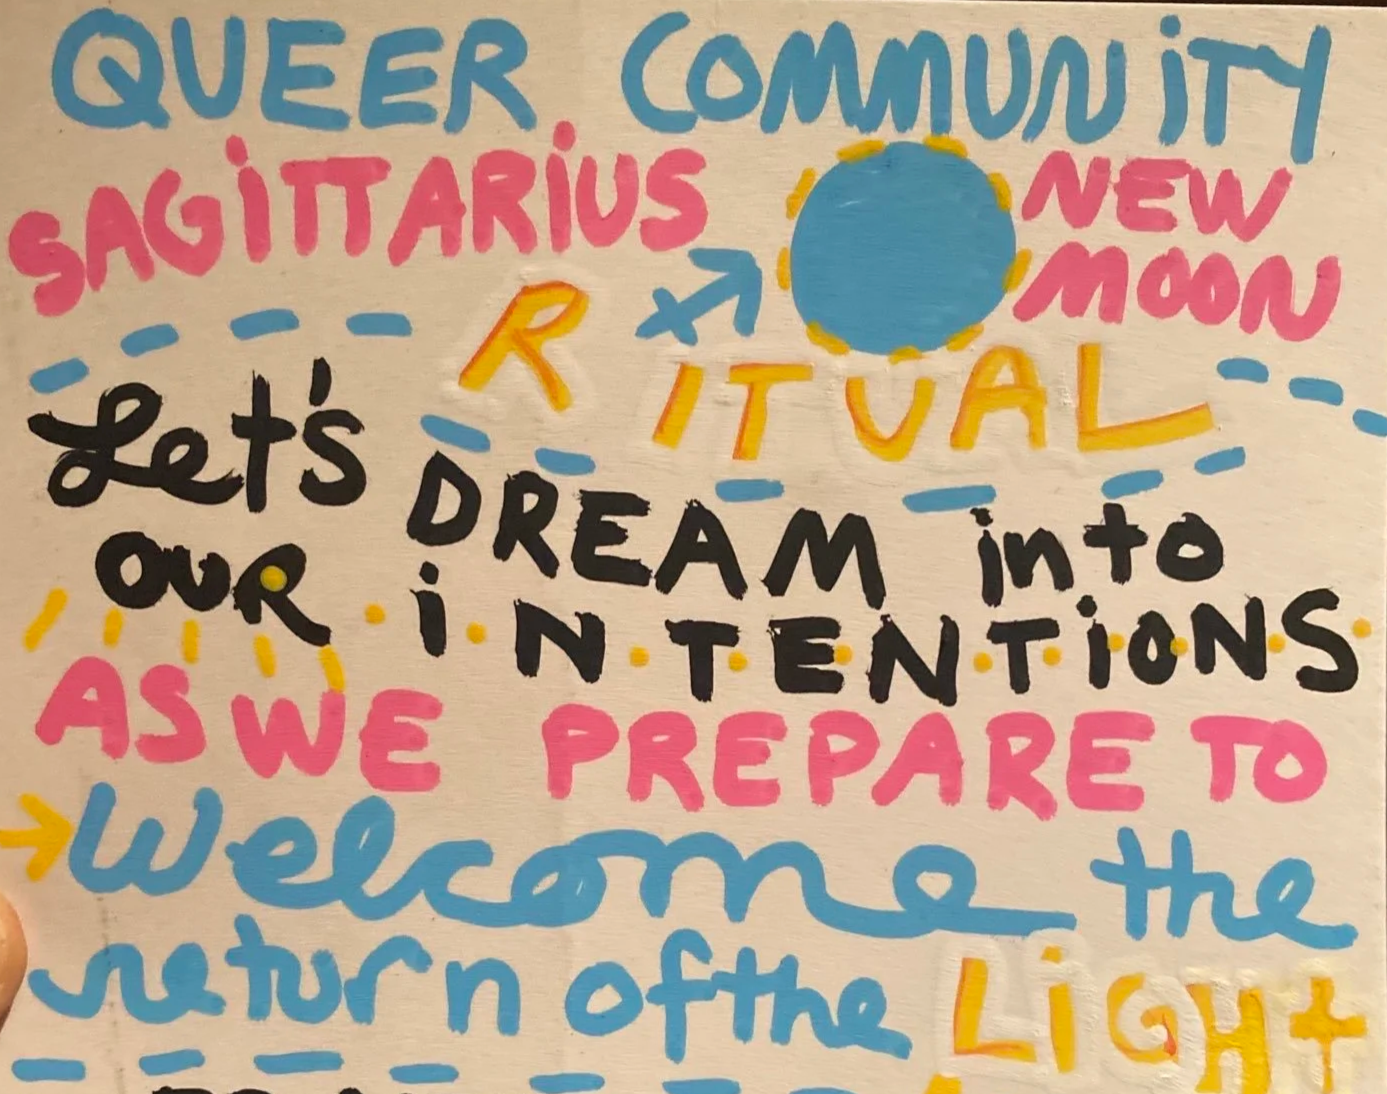 QUEER COMMUNiTY
SAGiTTARiUS NEW
MOON
RITUAL
Let's DREAM into
OUR iNTENTiONS
AS WE PREPARE TO
Welcome the
return of the LiGHt